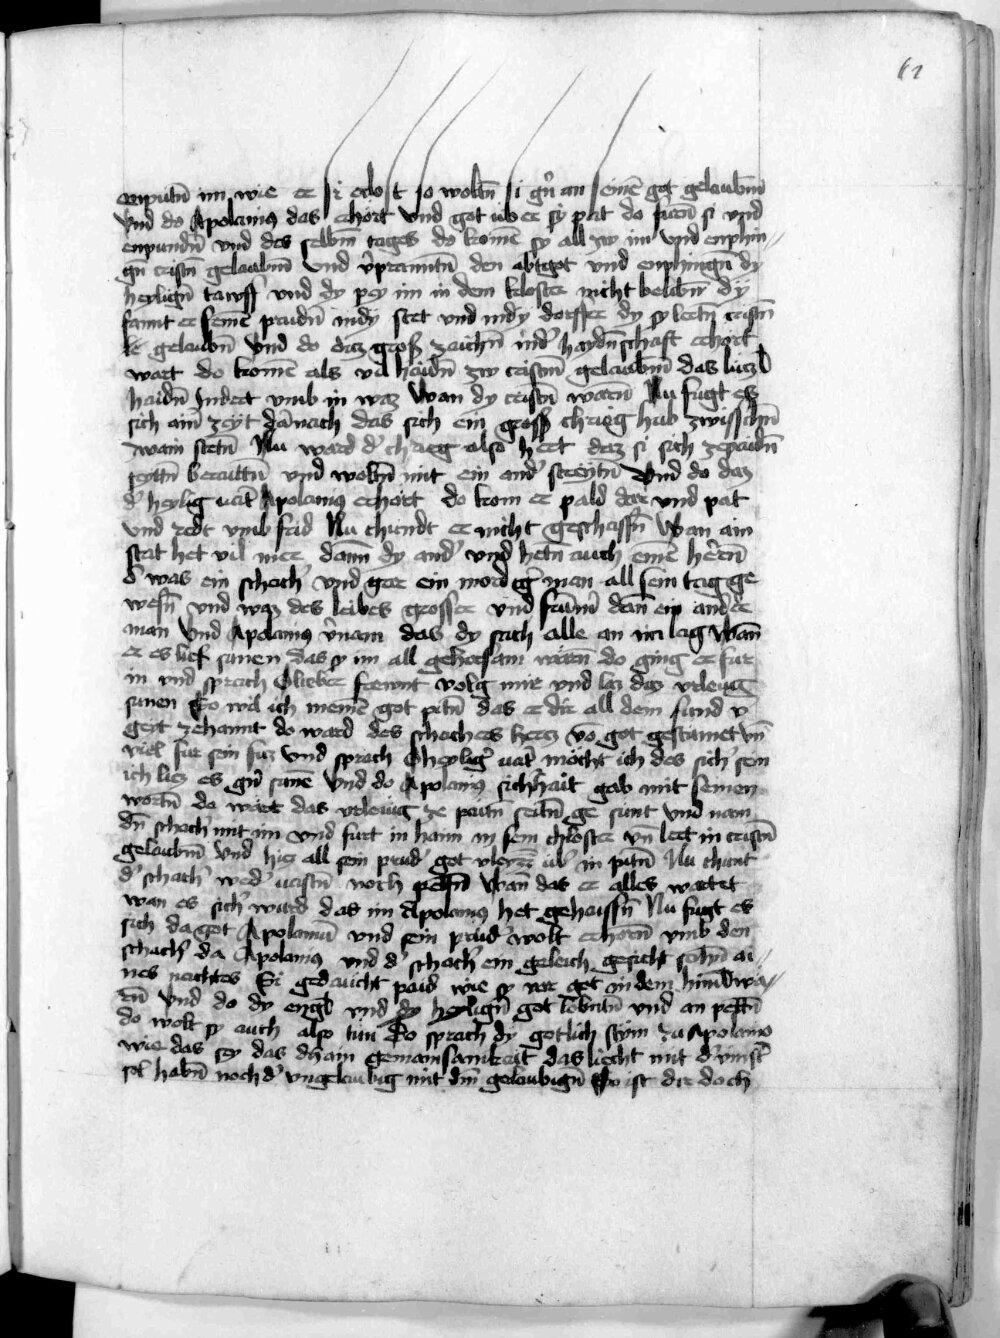 61
enputn̄ im wie er si erlost so woltn̄ si gn̄ an seinē got gelaubm̄
Vnd do Apolanius das erhort vnd got über sy pat do furn̄ si vnd
enpundn̄ vnd des selbm̄ tages do komē sy all zw im vnd enphin//
gn̄ cristn̄ gelaubm̄ vnd v̓pranntn̄ den abtgot vnd enphingn̄ dy
heylign̄ tawff vnd dy pey im in dem kloster nicht belibn̄ dy
sannt er seinē prudn̄ in dy stet vnd in dy dorffer dy sy lertn̄ cristn̄
gelaubn̄ Vnd do daz groß zaichn̄ in d̓ haydn̄schaft erhort
wart do komē als vil haidn̄ zw cristm̄ gelaubm̄ das lüczl
haidn̄ Indert vmb in waz Wan dy cristn̄ warn̄ Nu fugt es
sich ainr̄ zeyt darnach das sich ein gross chrieg hub zwisschn̄
zwain stetn̄ Nu ward d̓ chrieg also hert daz si sich ze paidn̄
seyttn̄ beraittn̄ vnd woltn̄ mit ein and̓ streytn̄ Vnd do daz
d̓ heylig vat̓ Apolanius erhort do kom er pald dar vnd pat
vnd redt vmb frid Nu chundt er nicht geschaffn̄ Wan ain
stat het vil mer dann dy and̓ vnd hetn̄ auch einē herrn̄
d̓ was ein schach̓ vnd gar ein mordig̓ man all sein tag ge
wesn̄ vnd waz des leibes grosser vnd frum̄ dan̄ ein ander
man Vnd Apolanius v̓nam das dy sach alle an im lag Wan̄
er es lief sunen das sy im all gehorsam warn̄ do ging er fur
in vnd sprach O lieber frewnt volg mir vnd laz daz vrleug
sunen So wil ich meinē got pitn̄ das er dir all dein sund v̓
geit Zehannt do ward des schachers hercz võ got gestamet vn̄
viel fur sein fuz Vnd sprach O heylig̓ vat̓ möcht ich des sich̓ sein
ich liez es gn̄ sunē Vnd do Apolanius sich̓hait gab mit seinen
wortn̄ do wart das vrleug ze paidn̄ seitn̄ ge sunt vnd nam
dn̄ schach̓ mit im vnd furt in haim in sein chloster vn̄ lert in cristn̄
gelaubm̄ Vnd hiez all sein prud̓ got vleyzz üb̓ in pitn̄ Nu chunt
d̓ schach̓ wed̓ vastn̄ noch petn̄ Wan̄ daz er alles wartet
wan es sich̓ wurd das im Apolanius het gehaissn̄ Nu fugt es
sich da got Apolaniū vnd sein prud̓ wolt erhorn̄ vmb den
schach̓ da Apolanius vnd d̓ schach̓ ein geleich gesicht sehn̄ ai//
nes nachtes Si gedaucht paid wie sy vor got in dem himel wa//
rn̄ Vnd do dy engl vnd dy heylign̄ got lobtn̄ vnd an petn̄
do wolt sy auch also tun Do sprach dy gotlich stym zu Apolanio
wie das sey das chain gemainsamkeit das liecht mit d̓ vinst̓
sol habn̄ noch d̓ vngelaubig mit dm̄ gelaubign̄ So ist dir doch